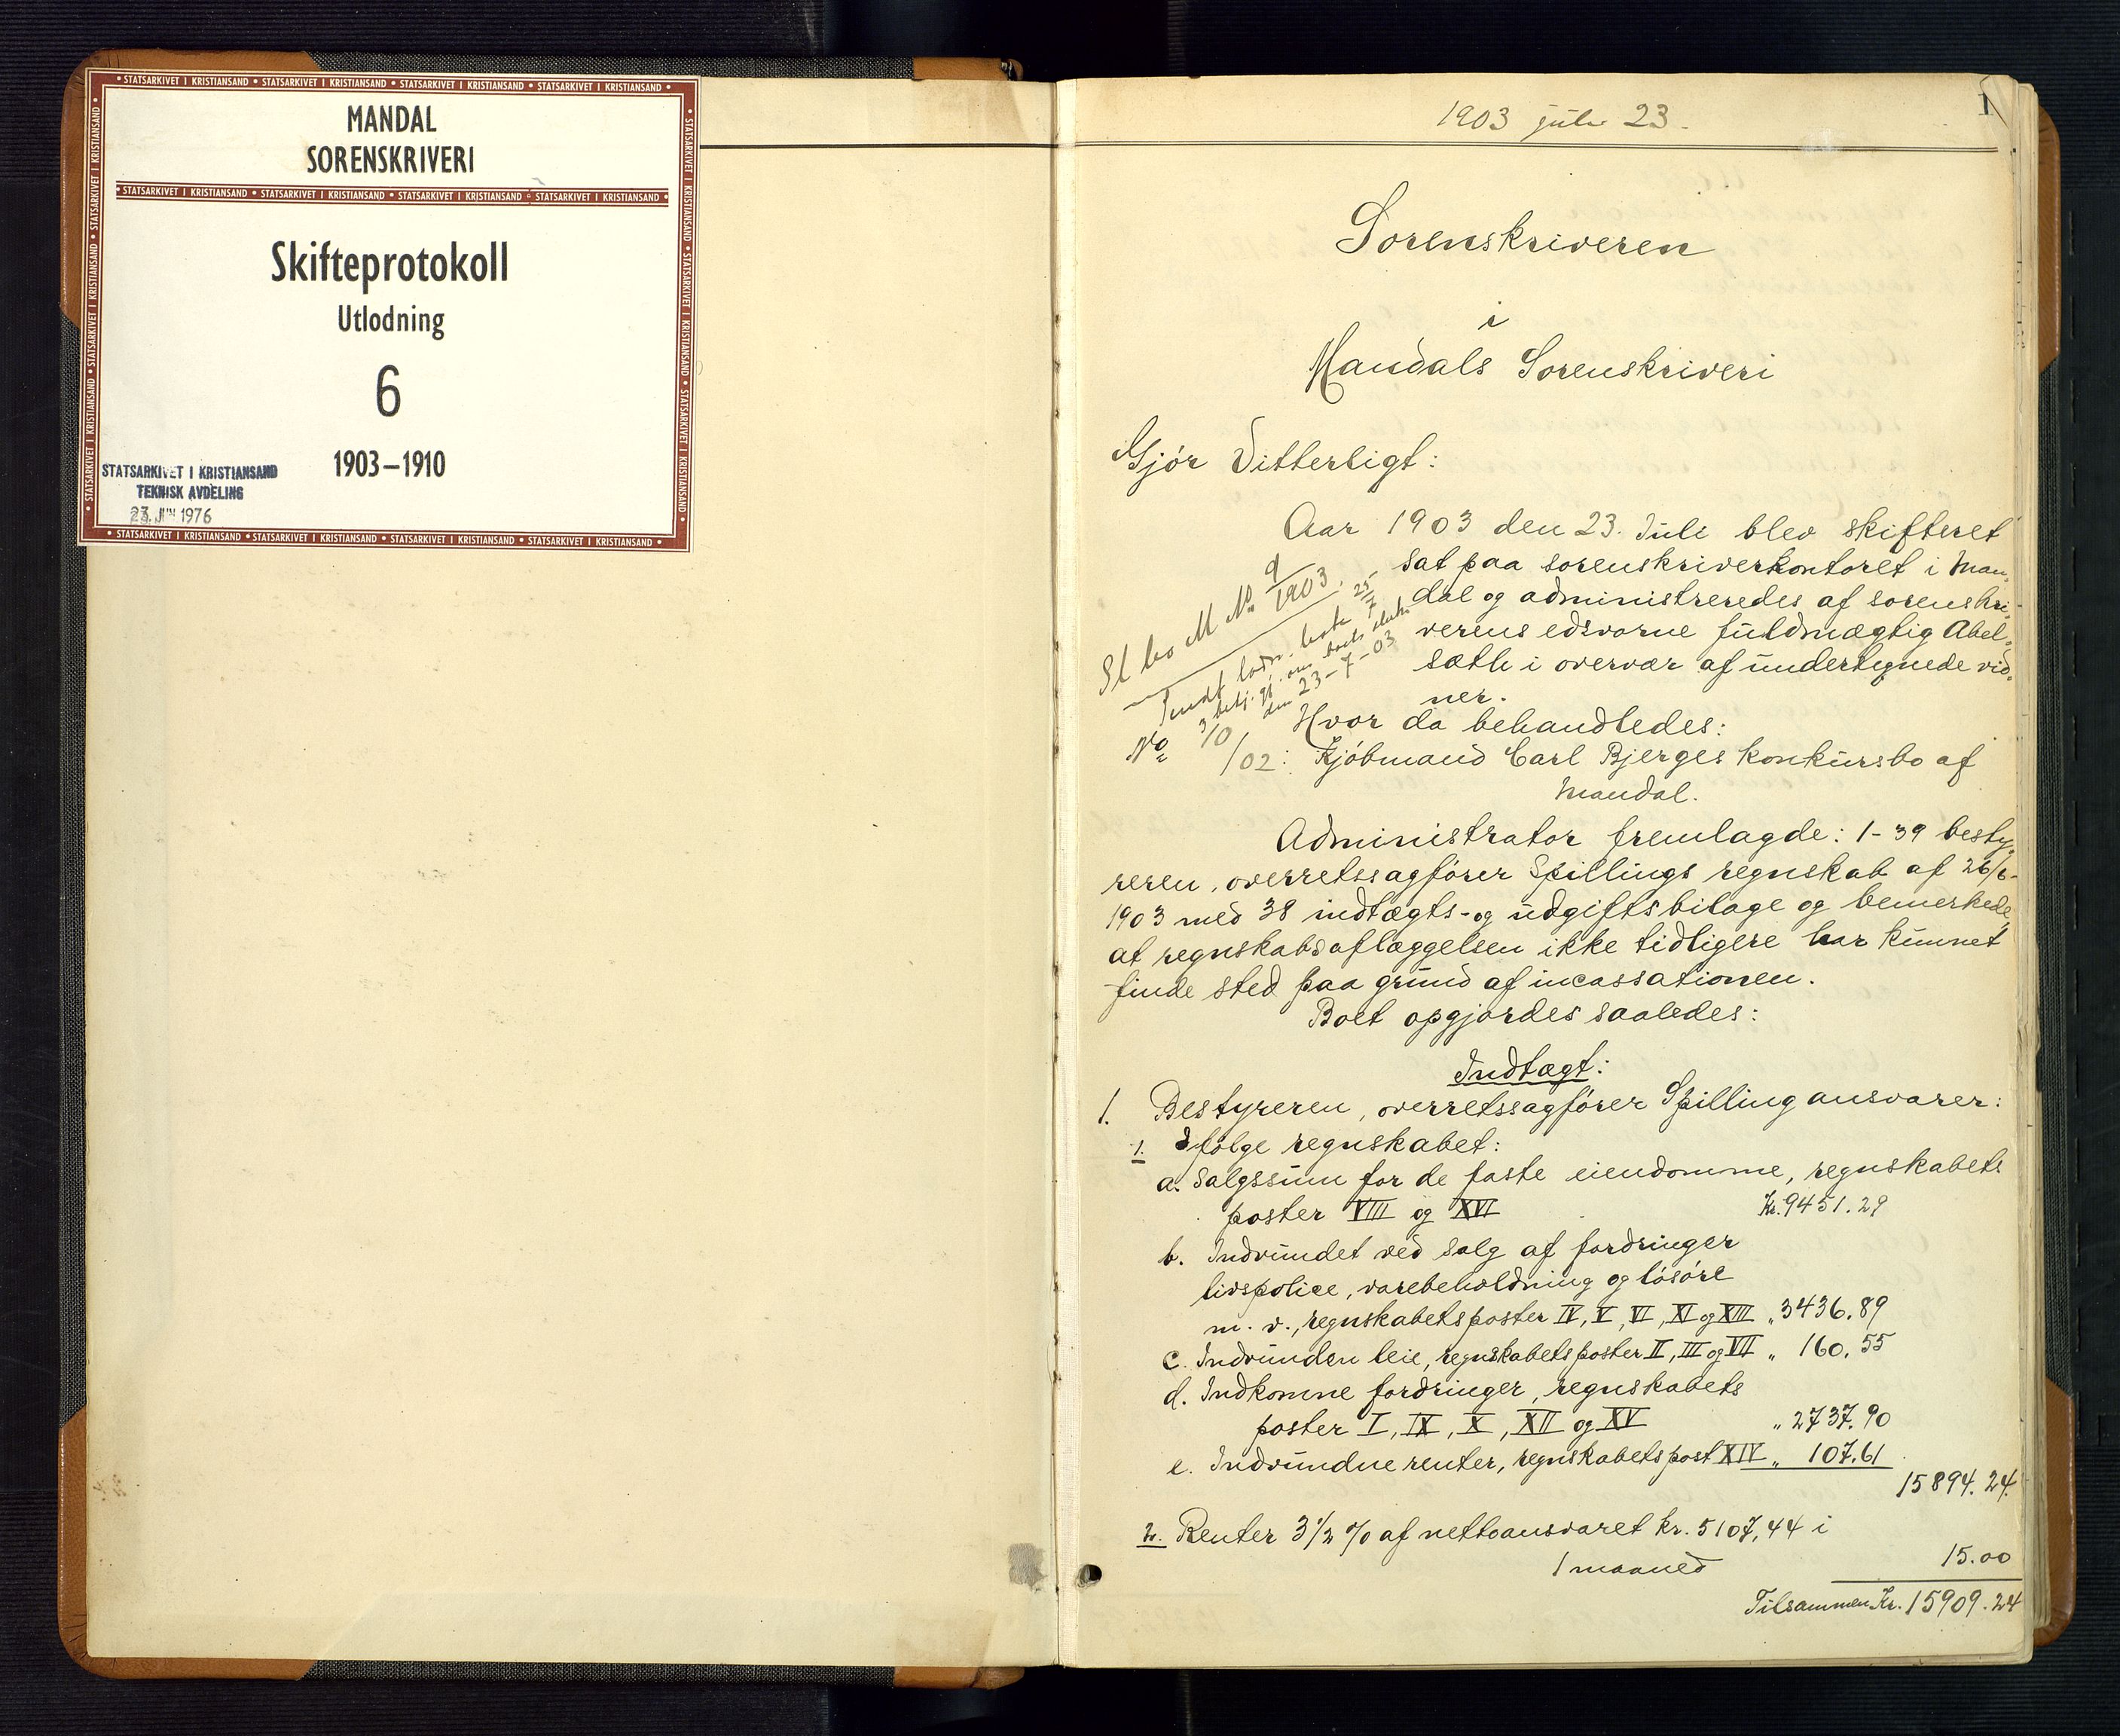 STATSARKIVET I KRISTIANSAND • STATSARKIVET I KRISTIANSAND • STATSARKIVET I KRISTIANSAND • STATSARKIVET I KRISTIANSAND
MANDAL
SORENSKRIVERI
STATSARKIVET I KRISTIANSAND • STATSARKIVET I KRISTIANSAND • STATSARKIVET I KRISTIANSAND • STATSARKIVET I KRISTIANSAND
Skifteprotokoll
Utlodning
6
1903–1910
STATSARKIVET I KRISTIANSAND
TEKNISK AVDELING
23. JUN 1976
STATSARKIVET I KRISTIANSAND • STATSARKIVET I KRISTIANSAND • STATSARKIVET I KRISTIANSAND • STATSARKIVET I KRISTIANSAND
1903 juli 23.
1
Sorenskriveren
i
Mandals Sorenskriveri
Gjör Vitterligt:
Aar 1903 den 23. Juli blev skifteret
sat paa sorenskriverkontoret i Man-
dal og administreredes af sorenskri-
verens edsvorne fuldmægtig Abel-
sæth i overvær af undertegnede vid-
ner.
No 9/1903.
23-7-03
Hvor da behandledes:
No 10/02: Kjöbmand Carl Bjerges konkursbo af
Mandal.
Administrator fremlagde: 1-39 besty-
reren, overretssagförer Spillings regnskab af 26/6-
1903 med 38 indtægts- og udgiftsbilage og bemerkede,
at regnskabsaflæggelsen ikke tidligere har kunnet
finde sted paa grund af incassationen.
Boet opgjordes saaledes:
Indtægt:
1. Bestyreren, overretssagförer Spilling ansvarer:
1. Ifölge regnskabet:
a. Salgssum for de faste eiendomme, regnskabets
poster VIII og XVI Kr. 9451.29
b. Indvundet ved salg af fordringer
livspolice, varebeholdning og lösöre
m. v., regnskabets poster IV, V, VI, XI og XIII „ 3436.89
c. Indvunden leie, regnskabets poster II, III og VII „ 160.55
d. Indkomne fordringer, regnskabets
poster I, IX, X, XII og XV „ 2737.90
e. Indvundne renter, regnskabets post XIV „ 107.61
15894.24
2. Renter 3 1/2 % af nettoansvaret kr. 5107,44 i
1 maaned 15.00
Tilsammen Kr. 15909.24